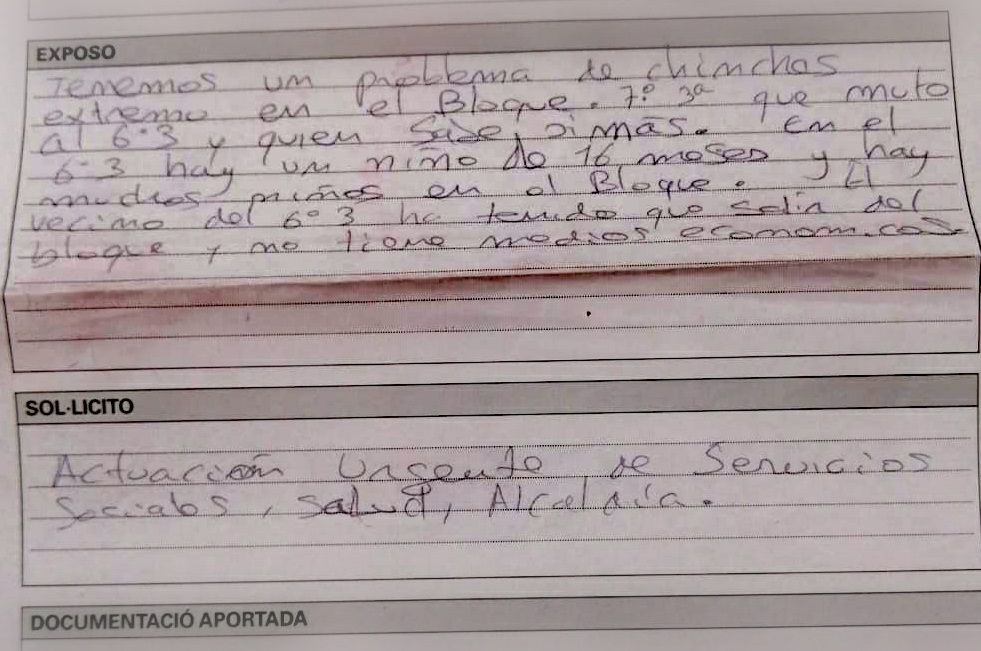 EXPOSO
Tenemos un problema de chinches
extremo en el Bloque. 7º 3ª que muto
al 6º 3 y quien sabe si más. En el
6º 3 hay un niño de 16 meses y hay
muchos niños en el Bloque. El
vecino del 6º 3 ha tenido que salir del
bloque y no tiene medios económicos
SOL·LICITO
Actuación Urgente de Servicios
Sociales, Salud, Alcaldía.
DOCUMENTACIÓ APORTADA